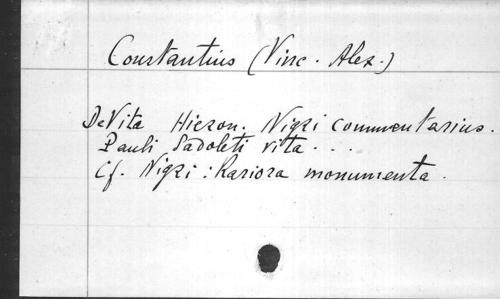 Constantius (Vinc. Alex.)
De Vita Hieron. Nigri commentarius.
Pauli Sadoleti vita . . .
Cf. Nigri : Rariora monumenta.